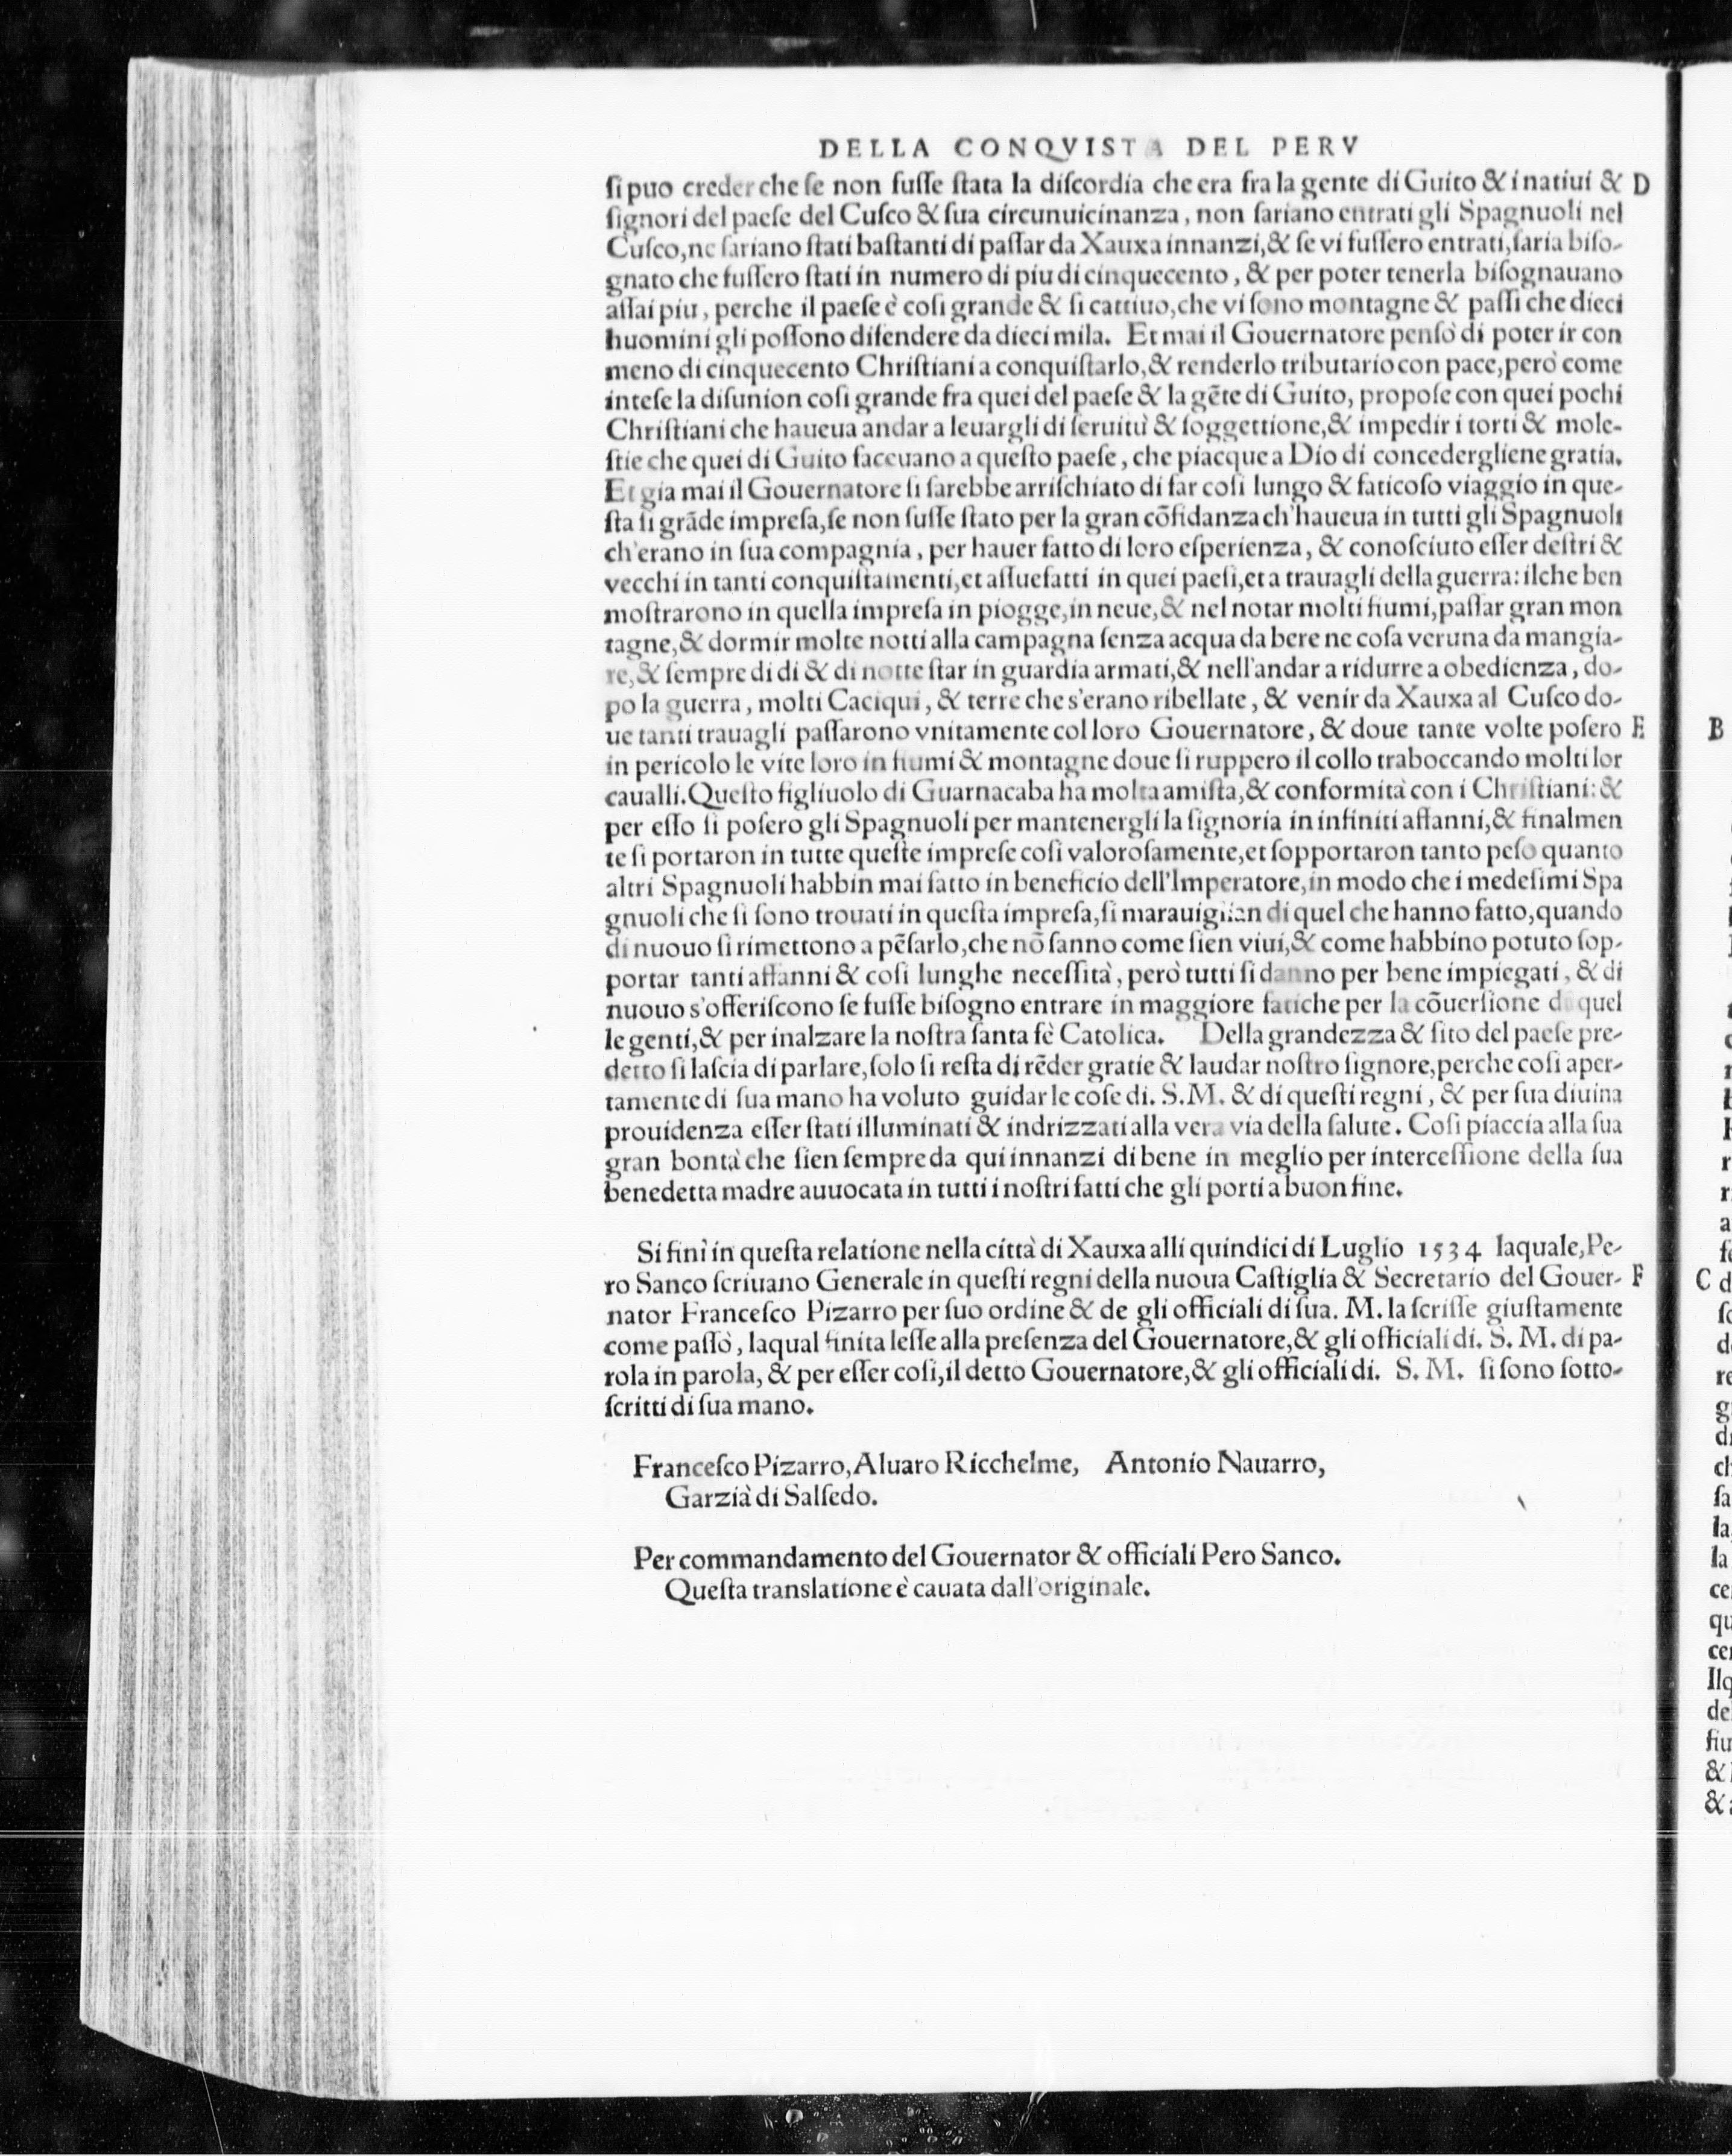 DELLA CONQVISTA DEL PERV
ſi puo creder che ſe non fuſſe ſtata la diſcordia che era fra la gente di Guito & i natiui & D
ſignori del paeſe del Cuſco & ſua circunuicinanza, non ſariano entrati gli Spagnuoli nel
Cuſco, ne ſariano ſtati baſtanti di paſſar da Xauxa innanzi, & ſe vi fuſſero entrati, ſaria biſo-
gnato che fuſſero ſtati in numero di piu di cinquecento, & per poter tenerla biſognauano
aſſai piu, perche il paeſe è coſi grande & ſi cattiuo, che vi ſono montagne & paſſi che dieci
huomini gli poſſono difendere da dieci mila. Et mai il Gouernatore penſò di poter ir con
meno di cinquecento Chriſtiani a conquiſtarlo, & renderlo tributario con pace, però come
inteſe la diſunion coſi grande fra quei del paeſe & la gẽte di Guito, propoſe con quei pochi
Chriſtiani che haueua andar a leuargli di ſeruitù & ſoggettione, & impedir i torti & mole-
ſtie che quei di Guito faceuano a queſto paeſe, che piacque a Dio di concedergliene gratia.
Et gia mai il Gouernatore ſi ſarebbe arriſchiato di far coſi lungo & faticoſo viaggio in que-
ſta ſi grãde impreſa, ſe non fuſſe ſtato per la gran cõfidanza ch'haueua in tutti gli Spagnuoli
ch'erano in ſua compagnia, per hauer fatto di loro eſperienza, & conoſciuto eſſer deſtri &
vecchi in tanti conquiſtamenti, et aſſuefatti in quei paeſi, et a trauagli della guerra: ilche ben
moſtrarono in quella impreſa in piogge, in neue, & nel notar molti fiumi, paſſar gran mon
tagne, & dormir molte notti alla campagna ſenza acqua da bere ne coſa veruna da mangia-
re, & ſempre di di & di notte ſtar in guardia armati, & nell'andar a ridurre a obedienza, do-
po la guerra, molti Caciqui, & terre che s'erano ribellate, & venir da Xauxa al Cuſco do-
ue tanti trauagli paſſarono vnitamente col loro Gouernatore, & doue tante volte poſero E
in pericolo le vite loro in fiumi & montagne doue ſi ruppero il collo traboccando molti lor
caualli. Queſto figliuolo di Guarnacaba ha molta amiſta, & conformità con i Chriſtiani: &
per eſſo ſi poſero gli Spagnuoli per mantenergli la ſignoria in infiniti affanni, & finalmen
te ſi portaron in tutte queſte impreſe coſi valoroſamente, et ſopportaron tanto peſo quanto
altri Spagnuoli habbin mai fatto in beneficio dell'Imperatore, in modo che i medeſimi Spa
gnuoli che ſi ſono trouati in queſta impreſa, ſi marauiglian di quel che hanno fatto, quando
di nuouo ſi rimettono a pẽſarlo, che nõ ſanno come ſien viui, & come habbino potuto ſop-
portar tanti affanni & coſi lunghe neceſſità, però tutti ſi danno per bene impiegati, & di
nuouo s'offeriſcono ſe fuſſe biſogno entrare in maggiore fatiche per la cõuerſione di quel
le genti, & per inalzare la noſtra ſanta fè Catolica. Della grandezza & ſito del paeſe pre-
detto ſi laſcia di parlare, ſolo ſi reſta di rẽder gratie & laudar noſtro ſignore, perche coſi aper-
tamente di ſua mano ha voluto guidar le coſe di. S.M. & di queſti regni, & per ſua diuina
prouidenza eſſer ſtati illuminati & indrizzati alla vera via della ſalute. Coſi piaccia alla ſua
gran bontà che ſien ſempre da qui innanzi di bene in meglio per interceſſione della ſua
benedetta madre auuocata in tutti i noſtri fatti che gli porti a buon fine.
Si finì in queſta relatione nella città di Xauxa alli quindici di Luglio 1534 laquale, Pe-
ro Sanco ſcriuano Generale in queſti regni della nuoua Caſtiglia & Secretario del Gouer- F
nator Franceſco Pizarro per ſuo ordine & de gli officiali di ſua. M. la ſcriſſe giuſtamente
come paſſò, laqual finita leſſe alla preſenza del Gouernatore, & gli officiali di. S. M. di pa-
rola in parola, & per eſſer coſi, il detto Gouernatore, & gli officiali di. S. M. ſi ſono ſotto-
ſcritti di ſua mano.
Franceſco Pizarro, Aluaro Ricchelme, Antonio Nauarro,
Garzià di Salſedo.
Per commandamento del Gouernator & officiali Pero Sanco.
Queſta translatione è cauata dall'originale.
B
C